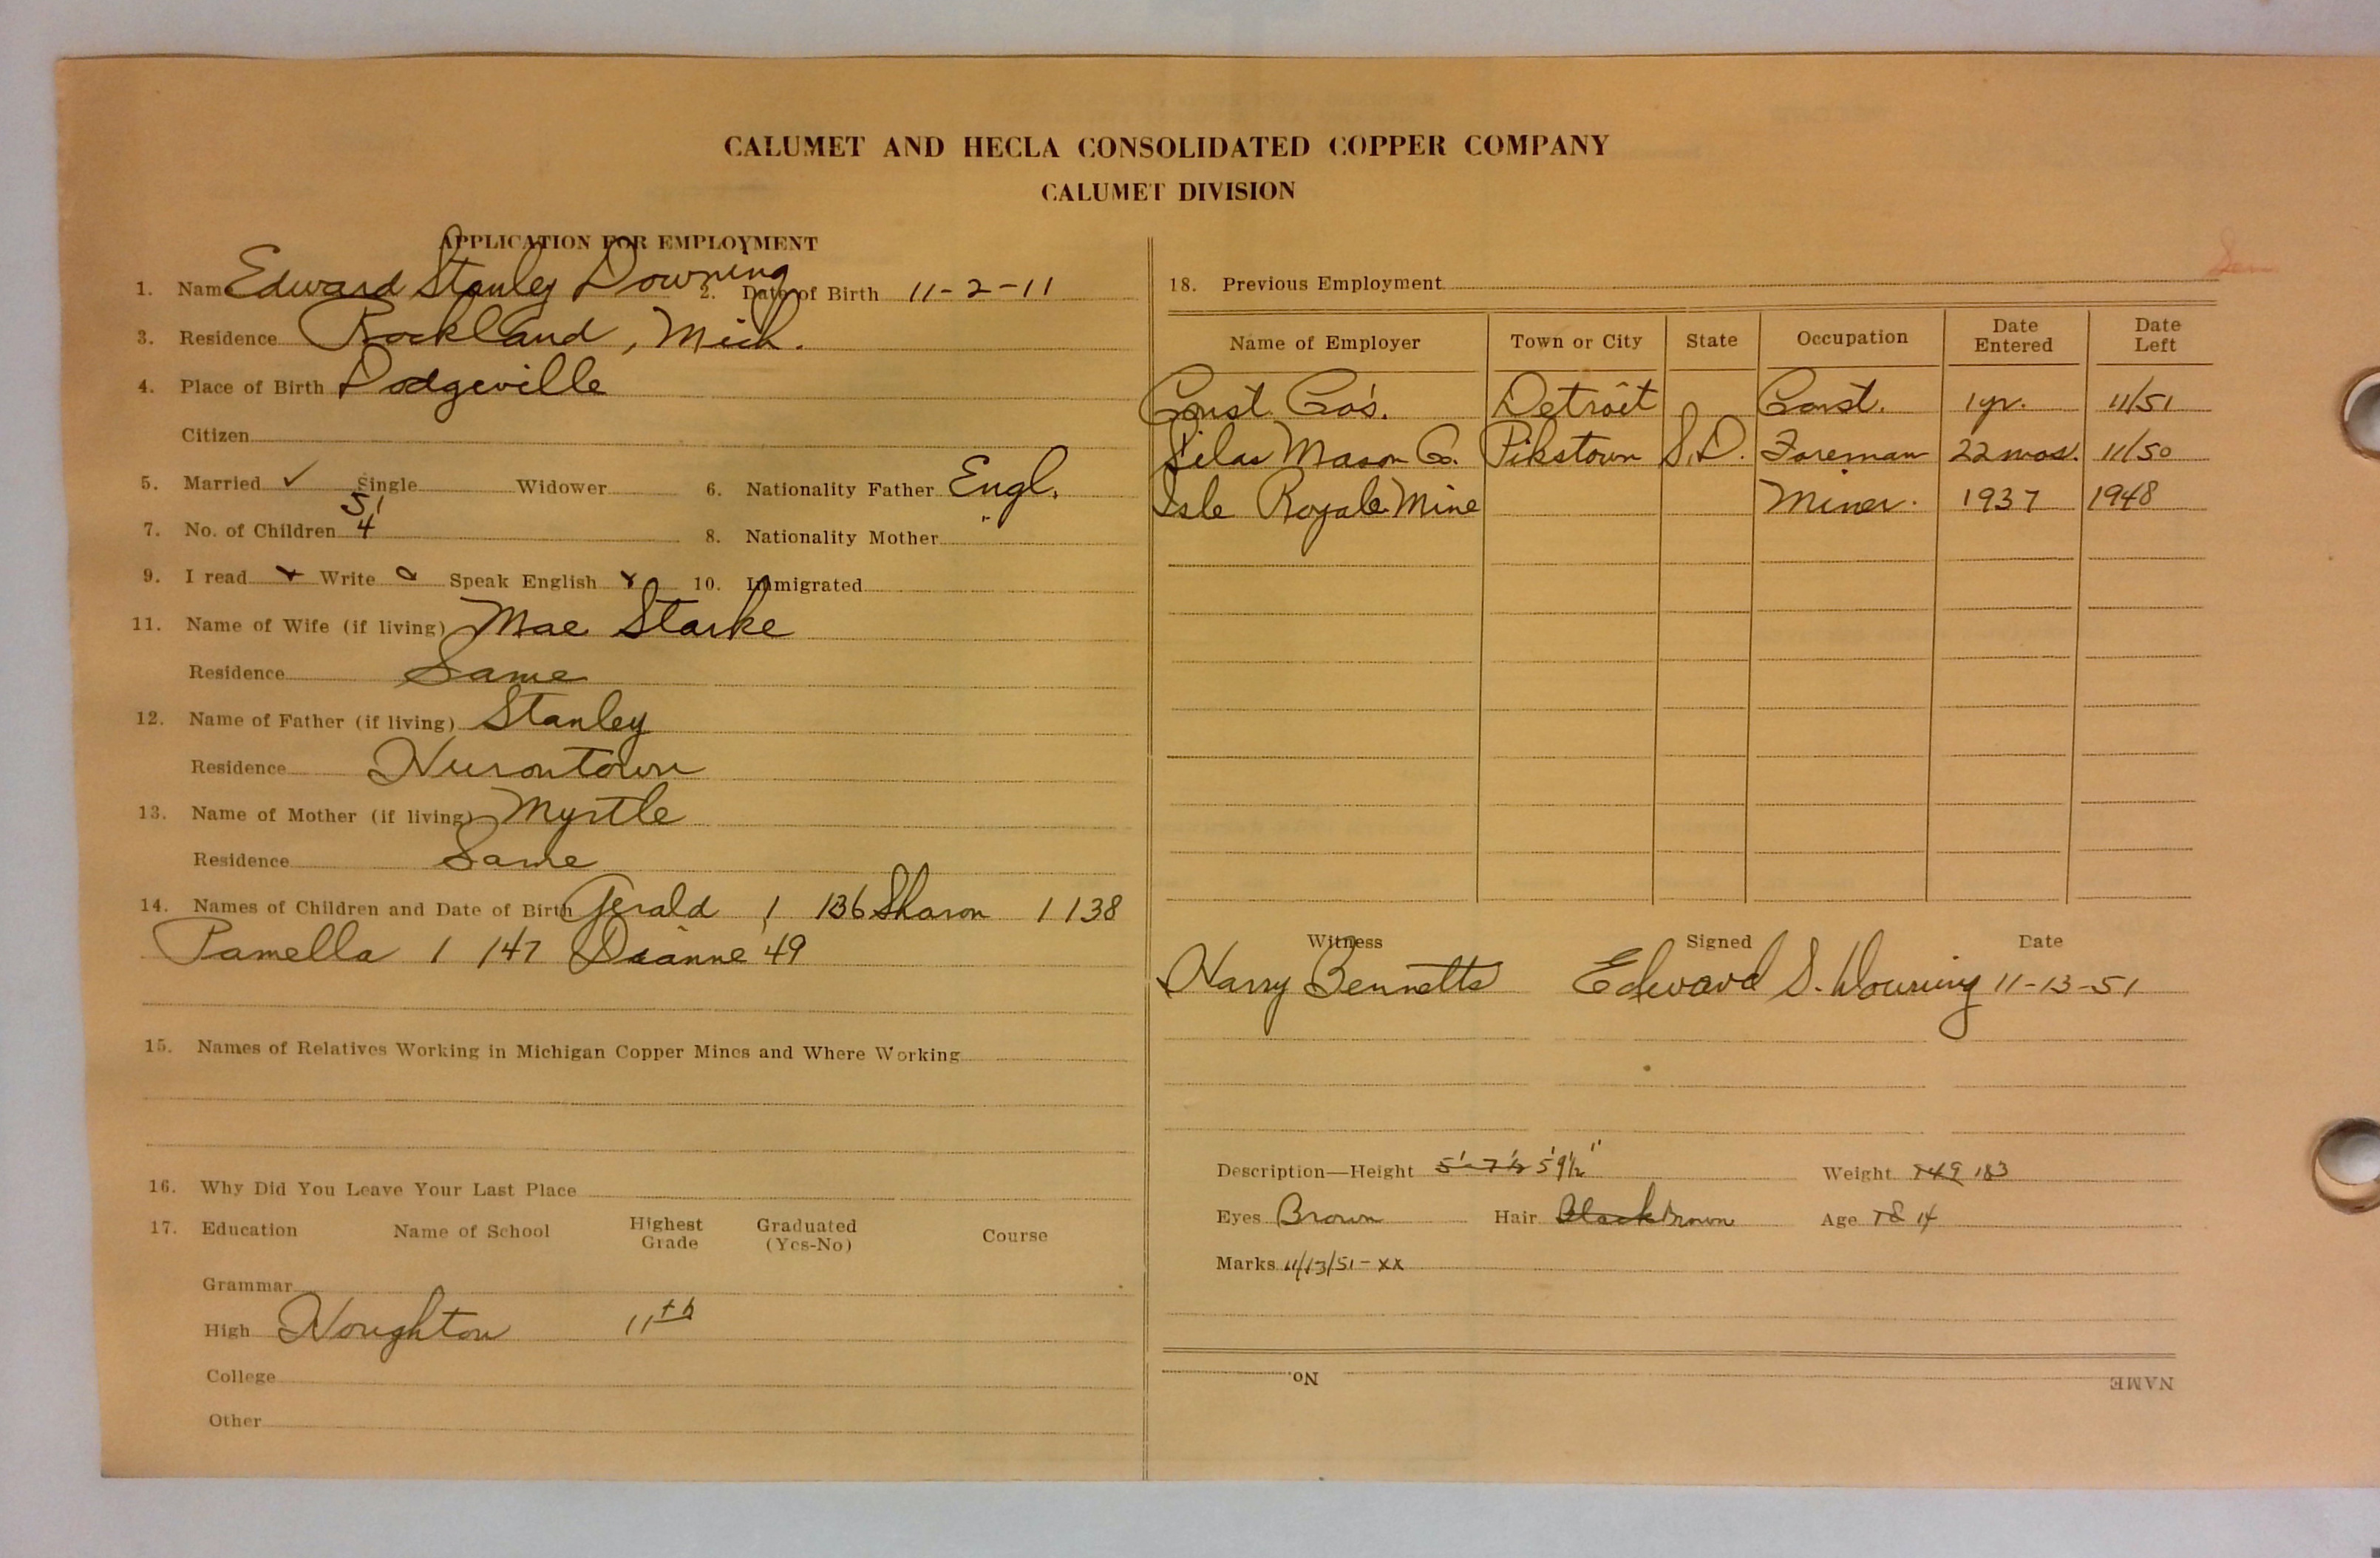 CALUMET AND HECLA CONSOLIDATED COPPER COMPANY
CALUMET DIVISION
APPLICATION FOR EMPLOYMENT
1. Name Edward Stanley Downing 2. Date of Birth 11-2-11
3. Residence Rockland, Mich.
4. Place of Birth Dodgeville
Citizen
5. Married ✓ Single Widower 6. Nationality Father Engl.
7. No. of Children 4 8. Nationality Mother "
9. I read Write Speak English 10. Immigrated
11. Name of Wife (if living) Mae Starke
Residence Same
12. Name of Father (if living) Stanley
Residence Hurontown
13. Name of Mother (if living) Myrtle
Residence Same
14. Names of Children and Date of Birth Gerald 1 136 Sharon 1 138
Pamella 1 147 Dianne 49
15. Names of Relatives Working in Michigan Copper Mines and Where Working
16. Why Did You Leave Your Last Place
17. Education Name of School Highest Grade Graduated (Yes-No) Course
Grammar
High Houghton 11th
College
Other
18. Previous Employment
Name of Employer Town or City State Occupation Date Entered Date Left
Const. Co's. Detroit Const. 1 yr. 11/51
Silas Mason Co. Pikstown S.D. Foreman 22 mos. 11/50
Isle Royale Mine Miner. 1937 1948
Witness Signed Date
Harry Bennetts Edward S. Downing 11-13-51
Description—Height 5'-7½ 5'9½" Weight 149 183
Eyes Brown Hair Black Brown Age
Marks 11/13/51-xx
No. NAME